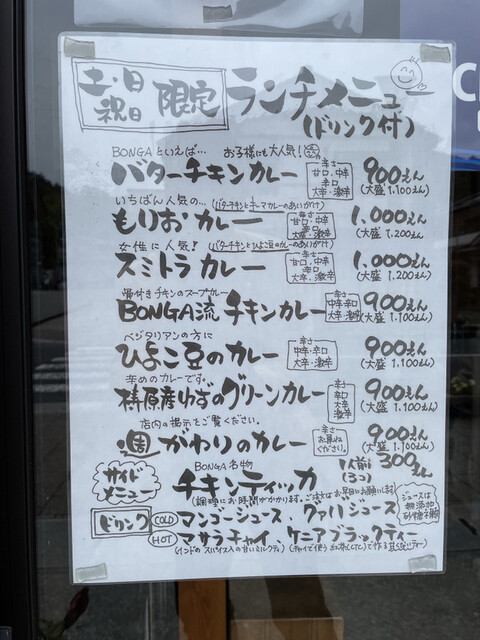 土・日
祝日
限定
ランチメニュー
(ドリンク付)
BONGAといえば… お子様にも大人気!
バターチキンカレー
辛さ
甘口・中辛
辛口
大辛・激辛
900えん
(大盛 1.100えん)
いちばん人気の… (バターチキンとキーマカレーのあいがけ)
もりおカレー
辛さ
甘口・中辛
辛口
大辛・激辛
1,000えん
(大盛 1.200えん)
女性に人気! (バターチキンとひよこ豆のカレーのあいがけ)
スミトラカレー
辛さ
甘口・中辛
辛口
大辛・激辛
1,000えん
(大盛 1.200えん)
骨付きチキンのスープカレー
BONGA流チキンカレー
辛さ
中辛・辛口
大辛・激辛
900えん
(大盛 1.100えん)
ベジタリアンの方に
ひよこ豆のカレー
辛さ
中辛・辛口
大辛・激辛
900えん
(大盛 1.100えん)
辛めのカレーです。
梼原産ゆずのグリーンカレー
辛さ
辛口
大辛
激辛
900えん
(大盛 1.100えん)
店内の掲示をご覧ください。
週がわりのカレー
辛さ
お尋ね
ください。
900えん
(大盛 1.100えん)
サイド
メニュー
BONGA名物
チキンティッカ
1人前
(3コ)
300えん
(調理にお時間がかかります。ご注文はお早目にお願いします)
ドリンク
COLD マンゴージュース、グァバジュース
ジュースは
無添加
砂糖不使用
HOT マサラチャイ、ケニアブラックティー
(インドのスパイス入の甘いミルクティ)